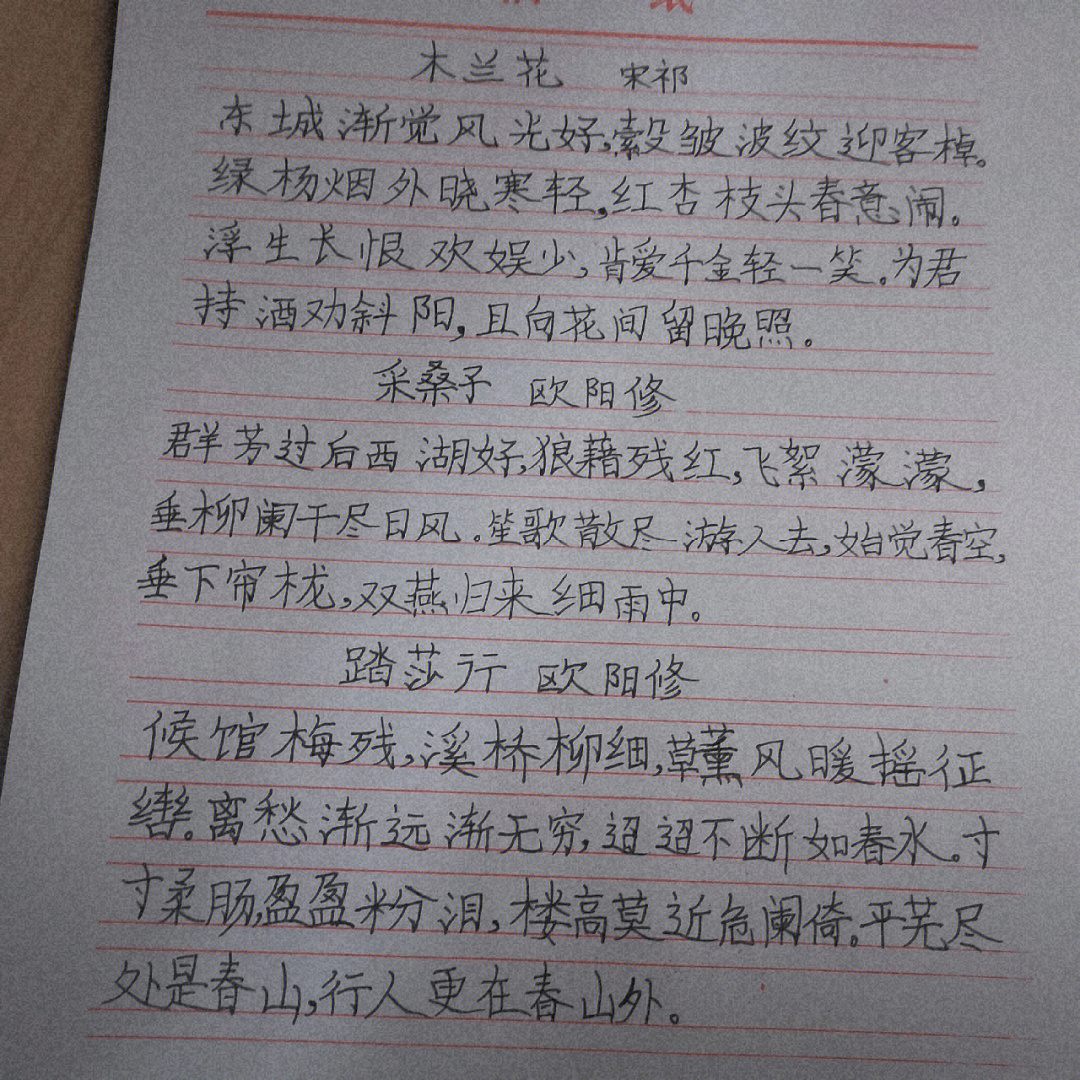 木兰花 宋祁
东城渐觉风光好,縠皱波纹迎客棹。
绿杨烟外晓寒轻,红杏枝头春意闹。
浮生长恨欢娱少,肯爱千金轻一笑。为君
持酒劝斜阳,且向花间留晚照。
采桑子 欧阳修
群芳过后西湖好,狼藉残红,飞絮濛濛,
垂柳阑干尽日风。笙歌散尽游人去,始觉春空,
垂下帘栊,双燕归来细雨中。
踏莎行 欧阳修
候馆梅残,溪桥柳细,草薰风暖摇征
辔。离愁渐远渐无穷,迢迢不断如春水。寸
寸柔肠,盈盈粉泪,楼高莫近危阑倚。平芜尽
处是春山,行人更在春山外。